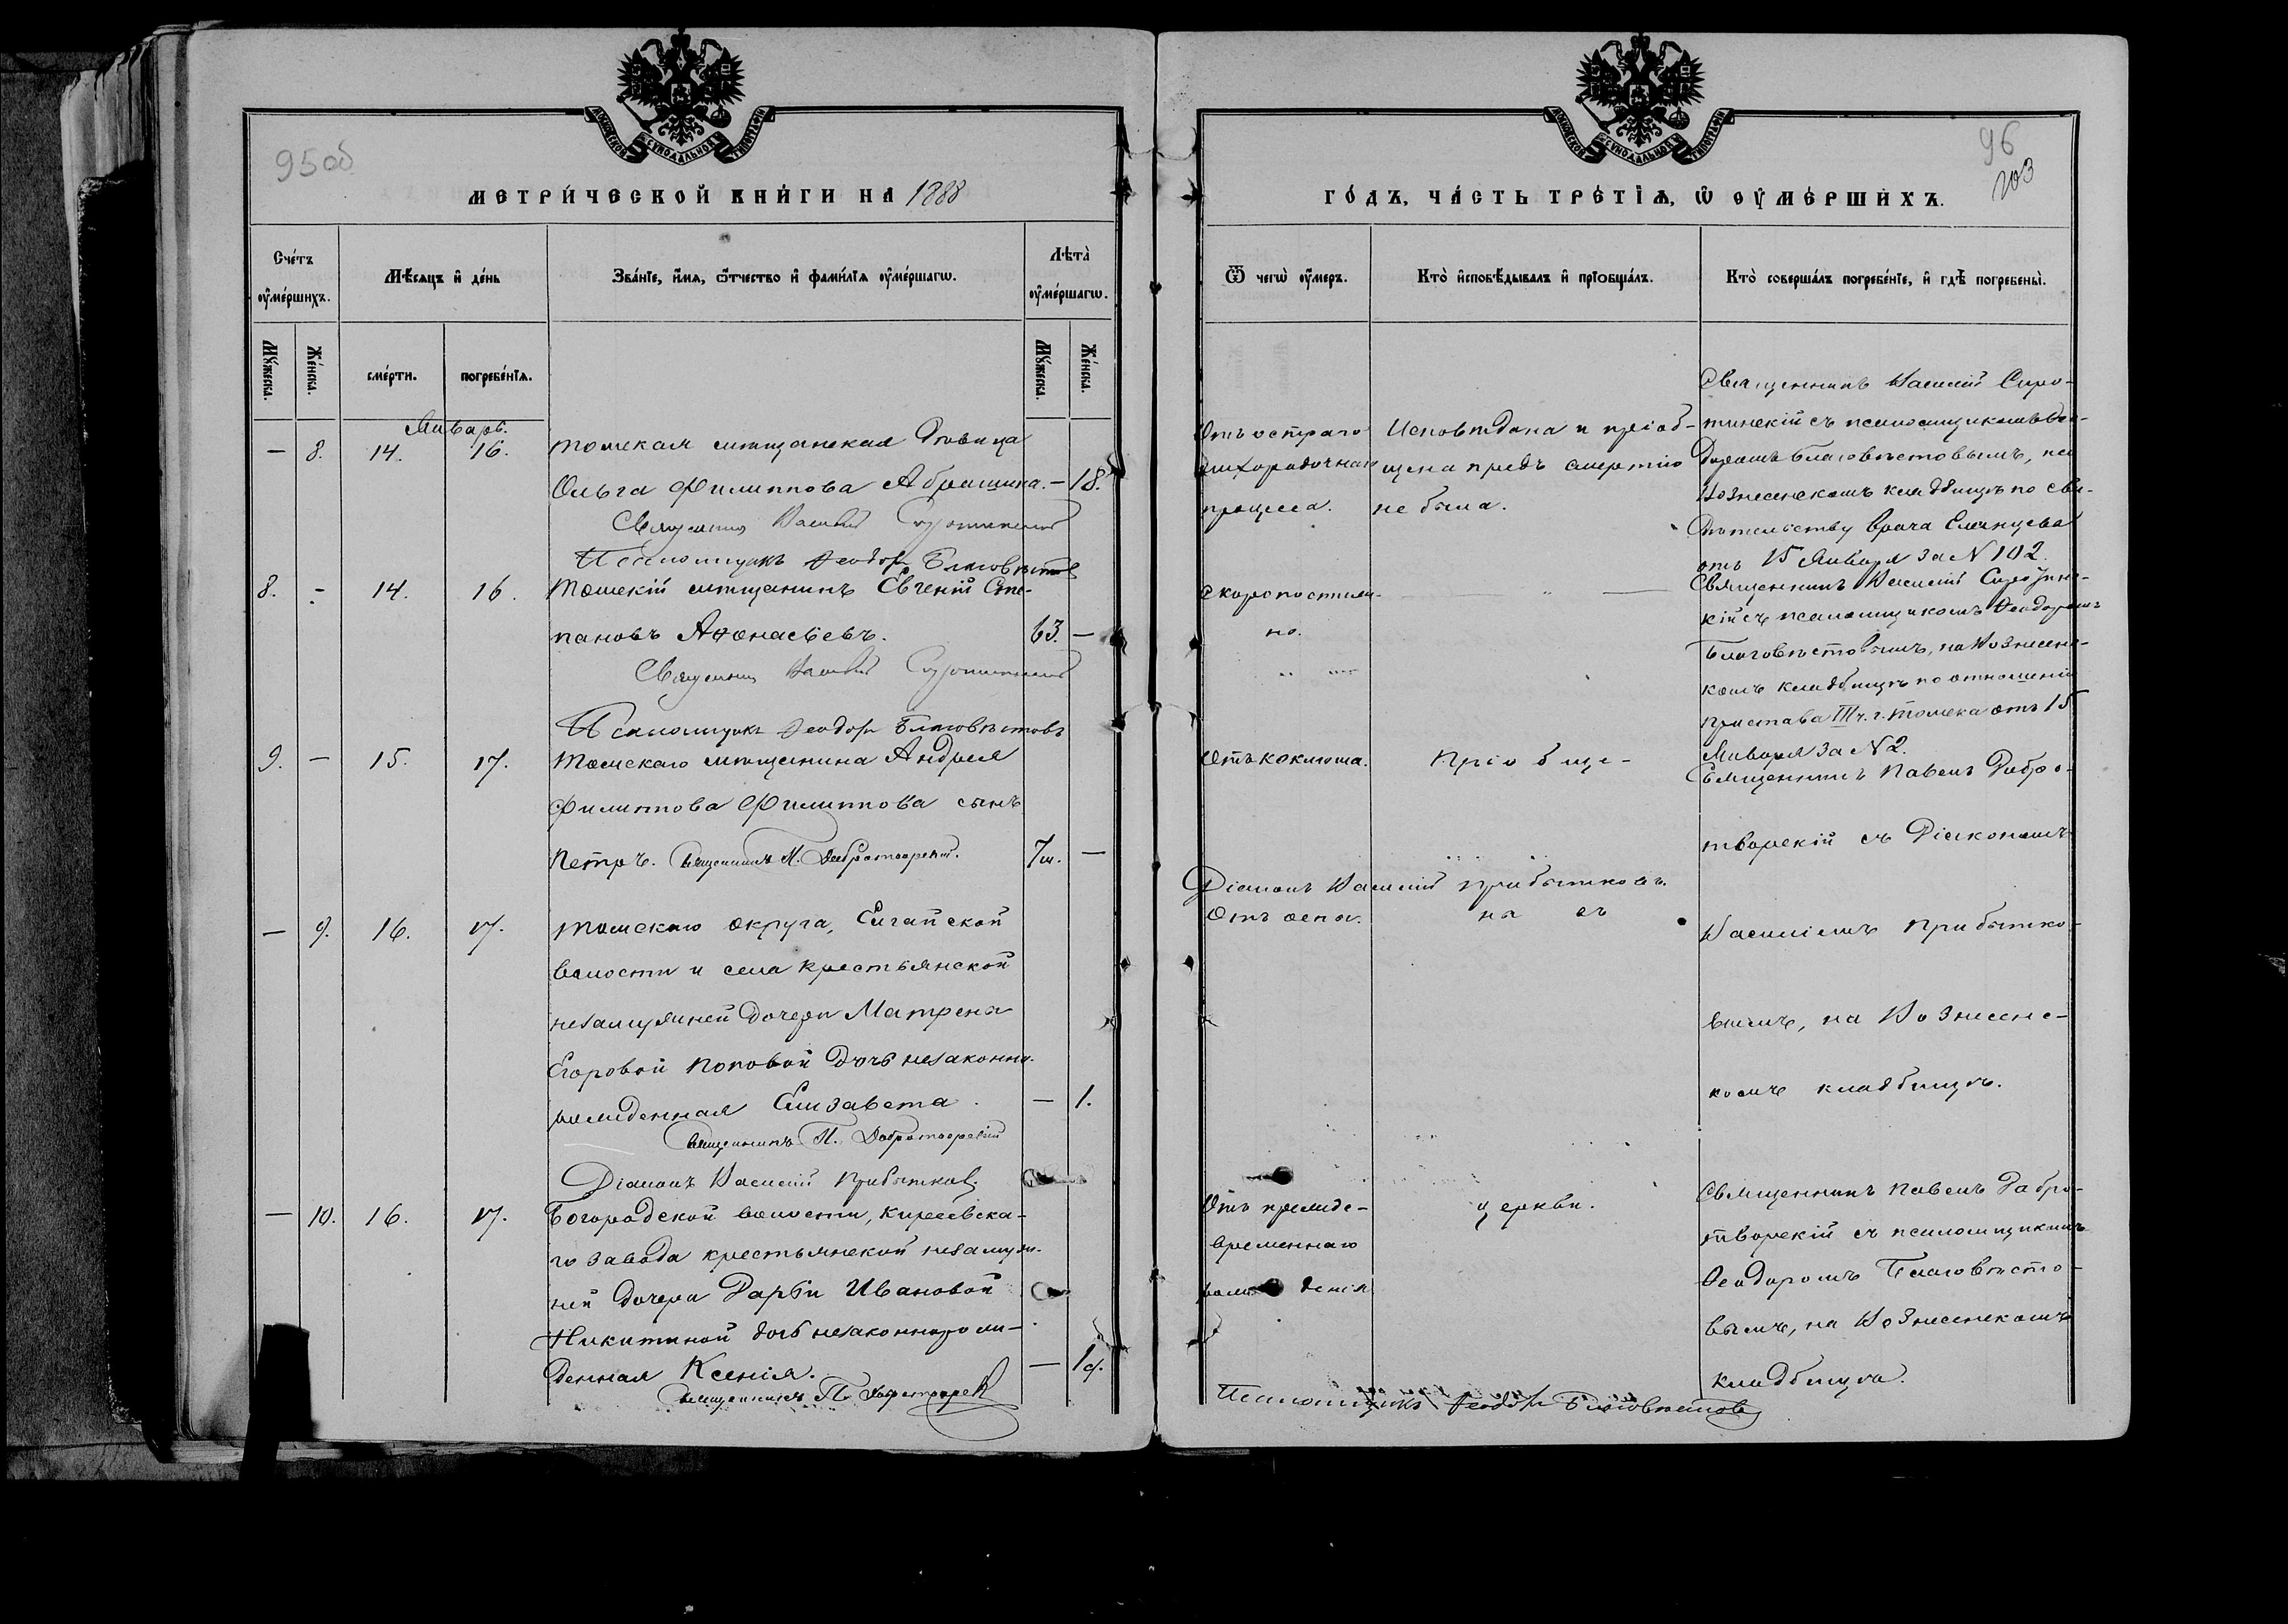 95об
МОСКОВСКОЙ СУНОДАЛЬНОЙ ТИПОГРАФІИ
МЕТРИ́ЧЕСКОЙ КНИ́ГИ НА 1888
Сче́тъ оу҆ме́ршихъ.
Мѣ́сяцъ и҆ де́нь
Зва́нїе, и҆́мя, ѻ҆́тчество и҆ фами́лїя оу҆ме́ршагѡ.
Лѣта̀ оу҆ме́ршагѡ.
Мꙋ́жеска.
Же́нска.
сме́рти.
погребе́нїя.
Мꙋ́жеска.
Же́нска.
Январь.
— 8. 14. 16. Томская мѣщанская дѣвица
Ольга Филиппова Абрашина. — 18.
Священникъ Василій Сиротинскій
Псаломщикъ Ѳеодоръ Благовѣстовъ
8. — 14. 16. Томскій мѣщанинъ Евгеній Сте-
пановъ Аѳонасьевъ. 63. —
Священникъ Василій Сиротинскій
Псаломщикъ Ѳеодоръ Благовѣстовъ
9. — 15. 17. Томскаго мѣщанина Андрея
Филиппова Филиппова сынъ
Петръ. Священникъ П. Добротворскій. 7 м. —
— 9. 16. 17. Томскаго округа, Елгайской
волости и села крестьянской
незамужней дочери Матрены
Егоровой Поповой дочь незаконно-
рожденная Елизавета. — 1.
Священникъ П. Добротворскій
Діаконъ Василій Прибытковъ.
— 10. 16. 17. Богородской волости, Киреевска-
го завода крестьянской незамуж-
ней дочери Дарьи Ивановой
Никитиной дочь незаконнорож-
денная Ксенія. — 1 д.
Священникъ П. Добротворскій
96
103
МОСКОВСКОЙ СУНОДАЛЬНОЙ ТИПОГРАФІИ
ГО́ДЪ, ЧА́СТЬ ТРЕ́ТЇѦ, Ѡ҆ ОУ҆МЕ́РШИХЪ.
Ѿ чегѡ̀ оу҆́меръ.
Кто̀ и҆сповѣ́дывалъ и҆ прїобща́лъ.
Кто̀ соверша́лъ погребе́нїе, и҆ гдѣ̀ погребены̀.
Отъ остраго
лихорадочнаго
процесса.
Исповѣдана и пріоб-
щена предъ смертію
не была.
Священникъ Василій Сиро-
тинскій съ псаломщикомъ Ѳео-
доромъ Благовѣстовымъ, на
Вознесенскомъ кладбищѣ по сви-
дѣтельству врача Еланцева
отъ 15 Января за № 102.
Скоропостиж-
но.
— " —
Священникъ Василій Сиротинс-
кій съ псаломщикомъ Ѳеодоромъ
Благовѣстовымъ, на Вознесенс-
комъ кладбищѣ по отношенію
пристава III ч. г. Томска отъ 15
Января за № 2.
Отъ коклюша.
Пріобще-
Священникъ Павелъ Добро-
творскій съ Діакономъ
Діаконъ Василій Прибытковъ.
Отъ оспы.
на въ
Василіемъ Прибытко-
вымъ, на Вознесенс-
комъ кладбищѣ.
Отъ преждe-
временнаго
рожденія
церкви.
Священникъ Павелъ Добро-
творскій съ псаломщикомъ
Ѳеодоромъ Благовѣсто-
вымъ, на Вознесенскомъ
кладбищѣ.
Псаломщикъ Ѳеодоръ Благовѣстовъ